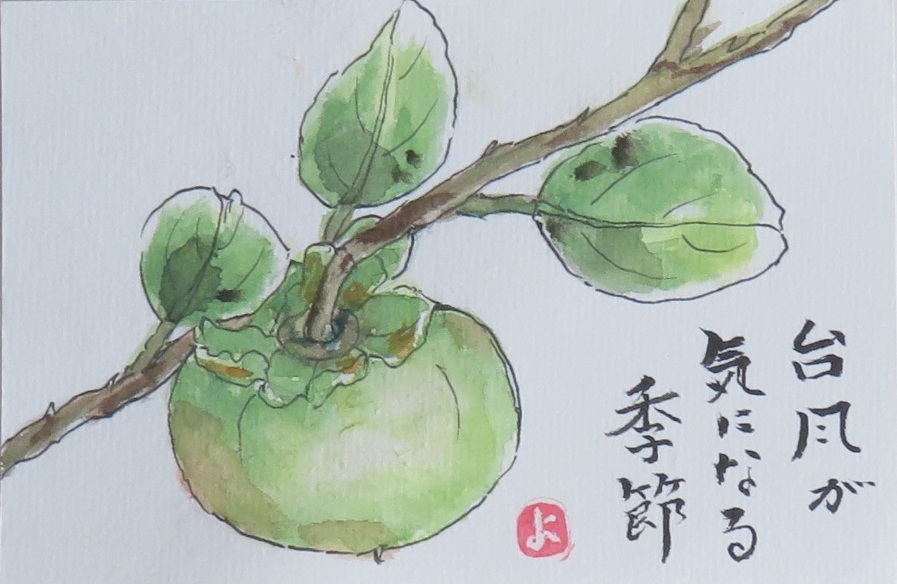 台風が
気になる
季節
よ